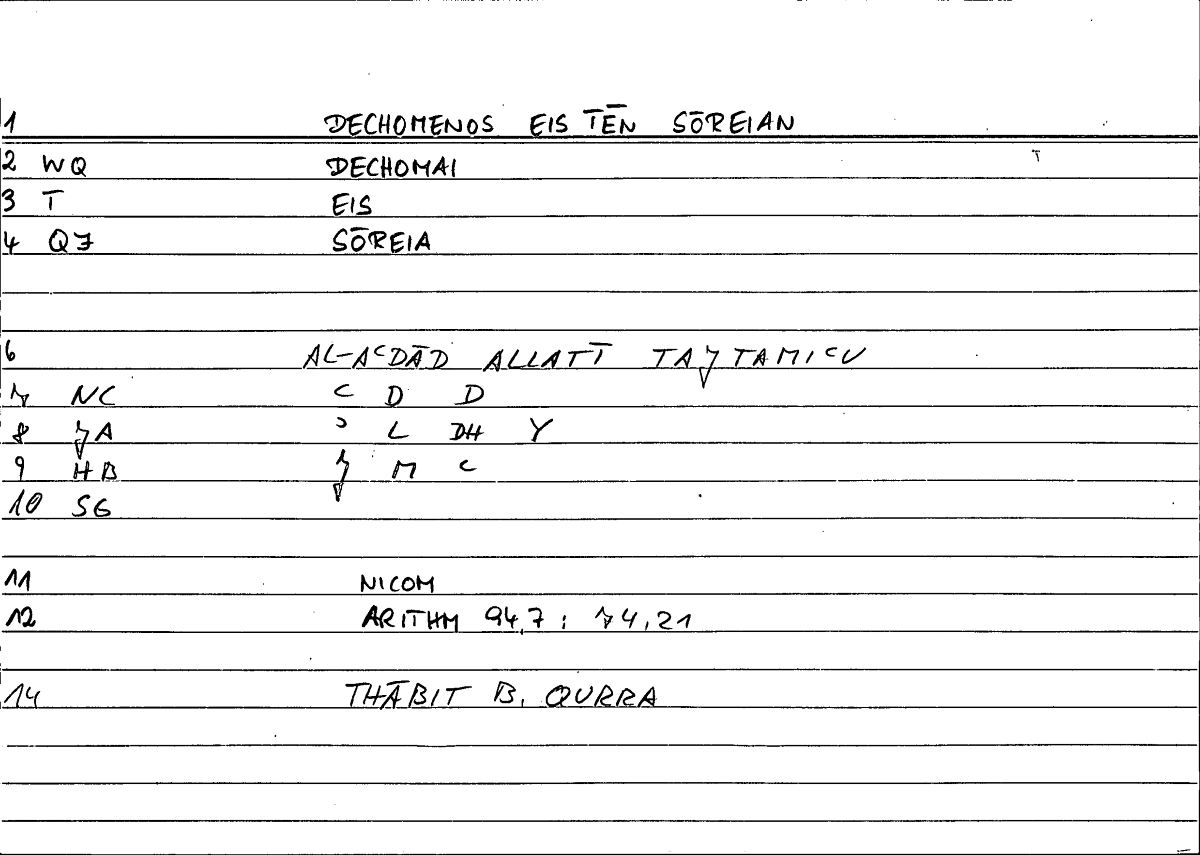 1 DECHOMENOS EIS TĒN SŌREIAN
2 WQ DECHOMAI
3 T EIS
4 QJ SŌREIA
6 AL-AʿDĀD ALLATĪ TAǦTAMIʿU
7 NC ʿ D D
8 ǦA ʾ L DH Y
9 HB Ǧ M ʿ
10 SG
11 NICOM
12 ARITHM 94,7 : 74,21
14 THĀBIT B. QURRA